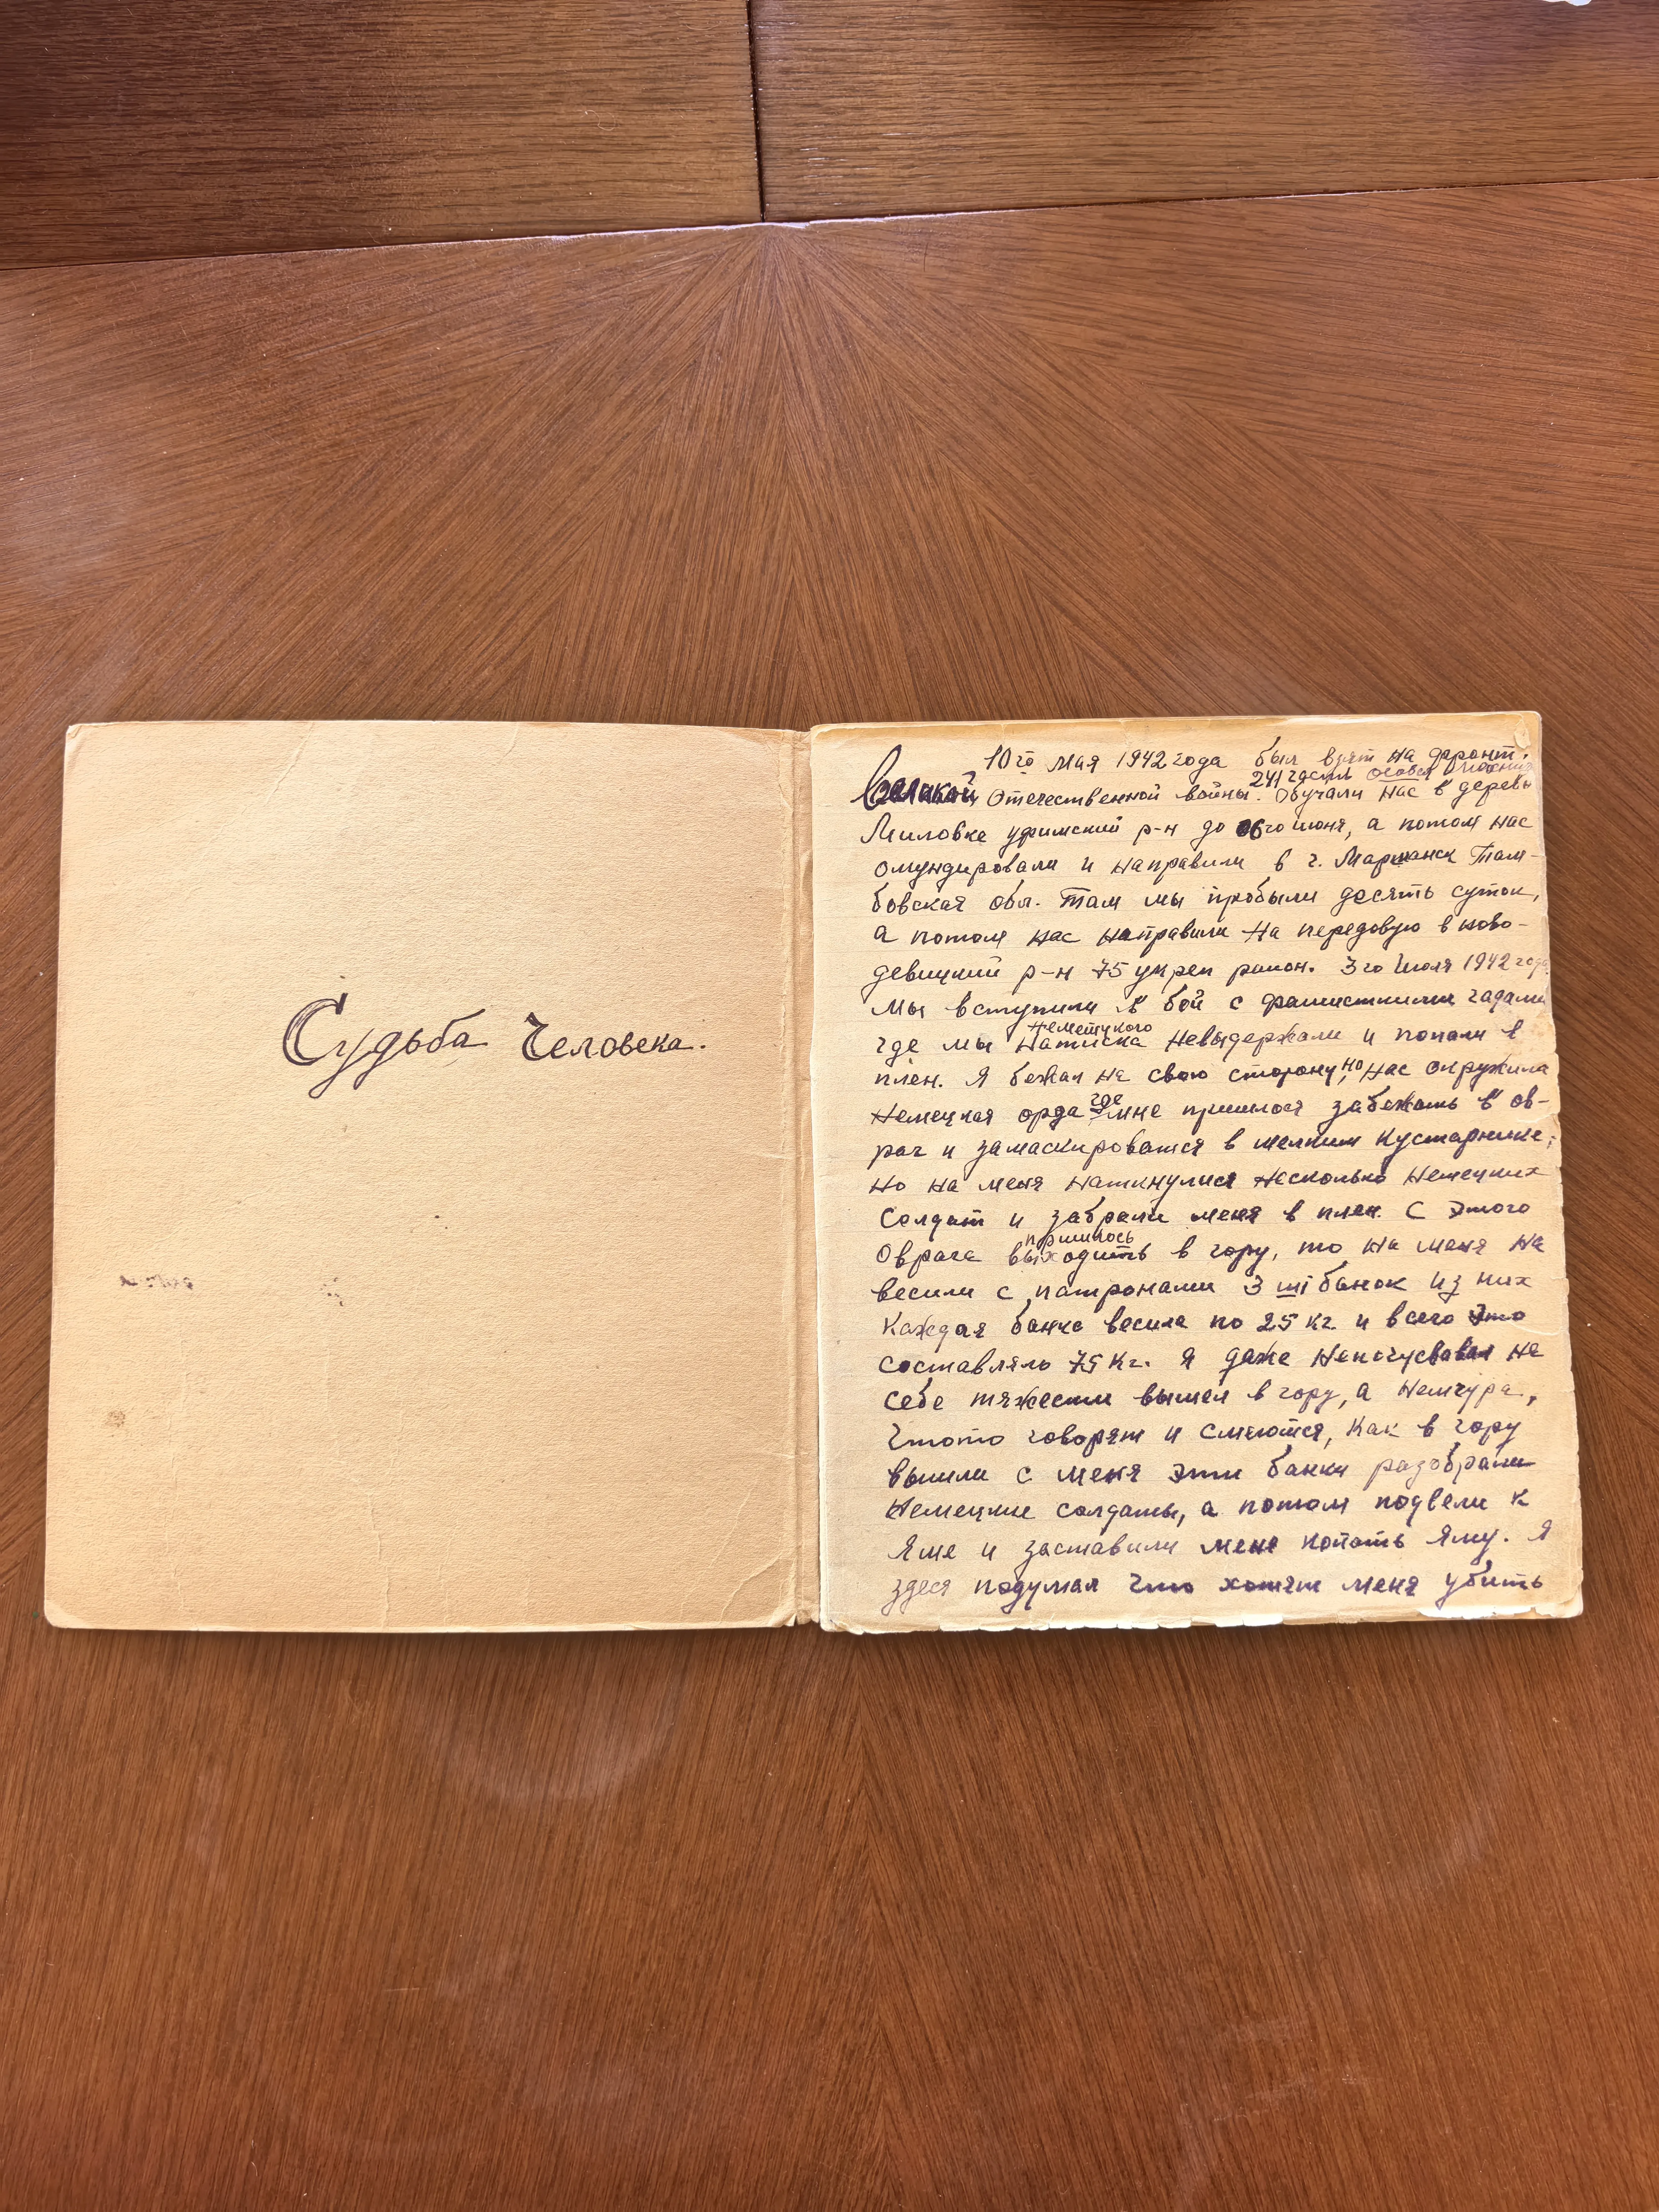 Судьба Человека.
10го мая 1942 года был взят на фронт.
Великой Отечественной войны. Обучали нас в деревн
241 части особой
Миловке уфимский р-н до 06го июня, а потом нас
омундировали и направили в г. Маршанск Там-
бовская обл. Там мы пробыли десять суток,
а потом нас направили на передовую в ново-
девицкий р-н 75 укреп район. 3го Июля 1942 года
мы вступили в бой с фашисткими гадами
немецкого
где мы натиска невыдержали и попали в
плен. Я бежал на свою сторону, но нас окружила
Немецкая орда где мне пришлося забежать в ов-
раг и замаскироватся в мелким кустарнике,
но на меня наткнулися несколько Немецких
Солдат и забрали меня в плен. С этого
пришлось
Оврага выходить в гору, то на меня на
весили с патронами 3 шт банок из них
Каждая банка весила по 25 кг. и всего это
составляло 75 кг. Я даже непочусвавал на
себе тяжести вышел в гору, а Немчура,
Чтото говорят и смеются, как в гору
вышли с меня эти банки разобрали
Немецкие солдаты, а потом подвели к
Яме и заставили меня копать яму. Я
здеся подумал что хотят меня убить